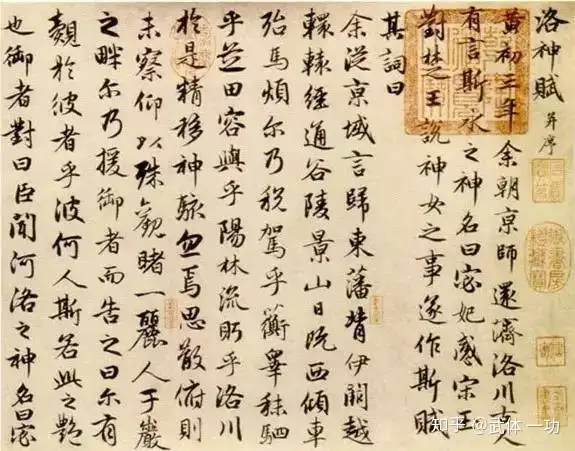 洛神賦 并序
黃初三年余朝京師還濟洛川古人
有言斯水之神名曰宓妃感宋玉
對楚王說神女之事遂作斯賦
其詞曰
余從京域言歸東藩背伊闕越
轘轅經通谷陵景山日既西傾車
殆馬煩尔乃稅駕乎蘅皋秣駟
乎芝田容與乎陽林流眄乎洛川
於是精移神駭忽焉思散俯則
未察仰以殊觀睹一麗人于巖
之畔尔乃援御者而告之曰尔有
覿於彼者乎彼何人斯若此之艷
也御者對曰臣聞河洛之神名曰宓
知乎 @武体一功